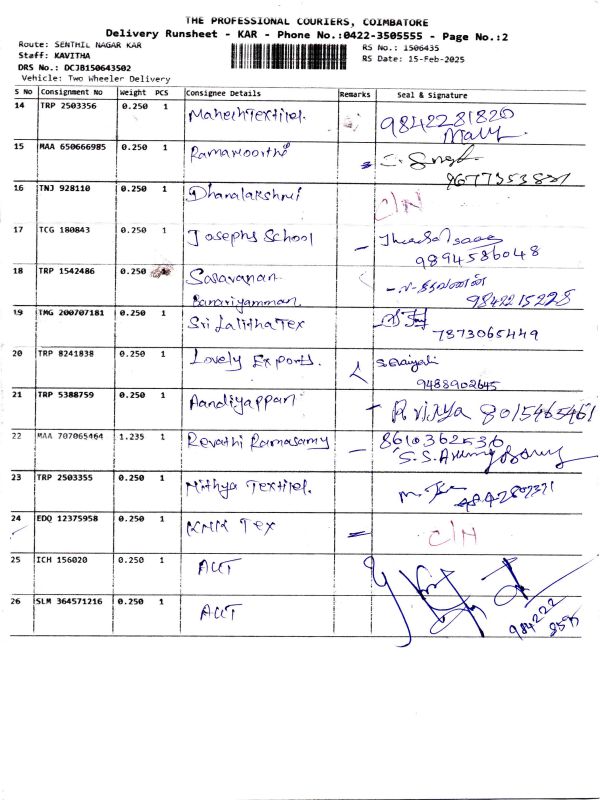 THE PROFESSIONAL COURIERS, COIMBATORE
Delivery Runsheet - KAR - Phone No.:0422-3505555 - Page No.:2
Route: SENTHIL NAGAR KAR
RS No.: 1506435
Staff: KAVITHA
RS Date: 15-Feb-2025
DRS No.: DCJB150643502
Vehicle: Two Wheeler Delivery
S No Consignment No Weight PCS Consignee Details Remarks Seal & Signature
14 TRP 2503356 0.250 1 Mahesh Textiles. 9842281820
15 MAA 650666985 0.250 1 Ramamoorthi
16 TNJ 928110 0.250 1 Dhanalakshmi C/N
17 TCG 180843 0.250 1 Josephs School
9894586048
18 TRP 1542486 0.250 Saravanan
Banariyamman 9842215228
19 TMG 200707181 0.250 1 Sri Lalitha Tex
7373065449
20 TRP 8241838 0.250 1 Lovely Exports.
9488902645
21 TRP 5388759 0.250 1 Aandiyappan R vijya 8015465461
22 MAA 707065464 1.235 1 Revathi Ramasamy 8610362536
23 TRP 2503355 0.250 1 Nithya Textiles.
24 EDQ 12375958 0.250 1 KNK Tex C/N
25 ICH 156020 0.250 1
26 SLM 364571216 0.250 1
984222